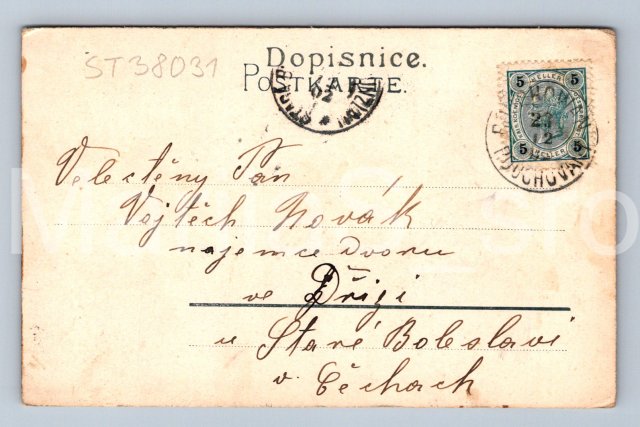 ST38031
Dopisnice.
POSTKARTE.
5 HELLER 5
5 HELLER 5
Velectěny Pán
Vojtěch Novák
najemce Dvoru
ve Dřízi
u Staré Boleslavi
v Čechach